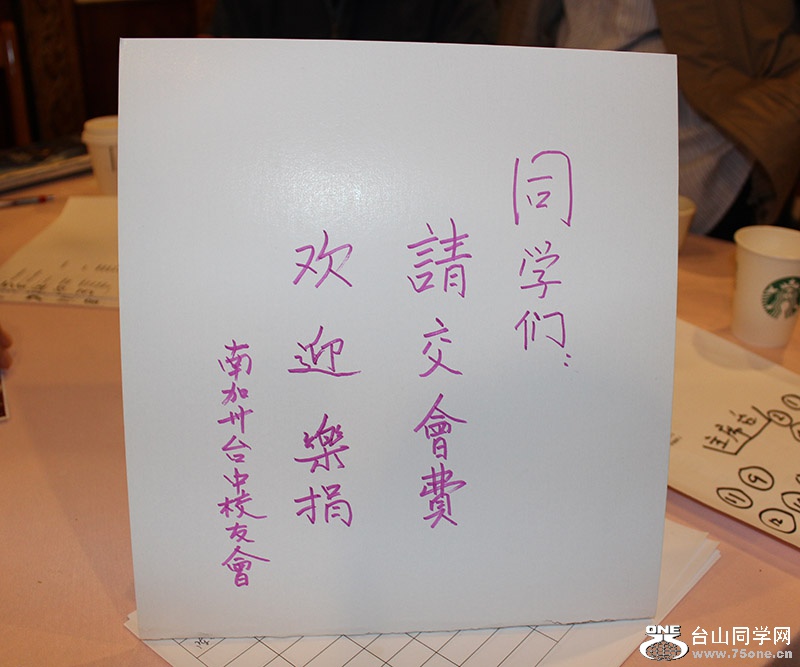 同学们:
請交會費
欢迎樂捐
南加州台中校友會
主席台
9
11
12
ONE
台山同学网
www.75one.cn